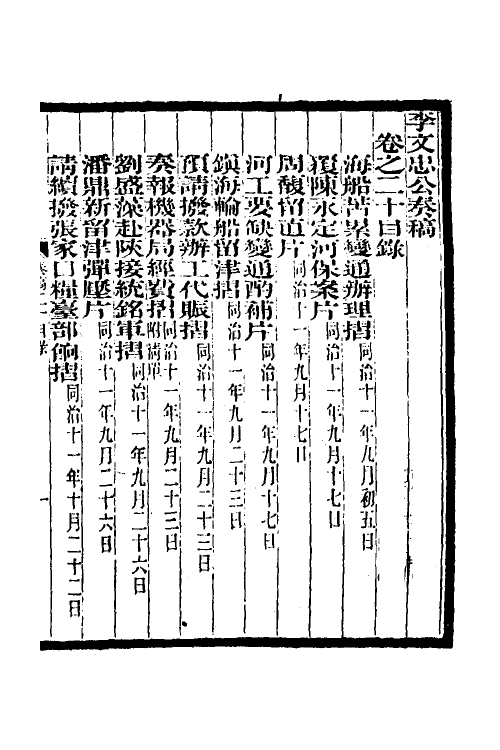 李文忠公奏稿
卷之二十目錄
海船苦累變通辦理摺同治十一年九月初五日
覆陳永定河保案片同治十一年九月十七日
周馥留道片同治十一年九月十七日
河工要缺變通酌補片同治十一年九月十七日
鎮海輪船留津摺同治十一年九月二十三日
預請撥款辦工代賑摺同治十一年九月二十三日
奏報機器局經費摺附清單同治十一年九月二十三日
劉盛藻赴陝接統銘軍摺同治十一年九月二十六日
潘鼎新留津彈壓片同治十一年九月二十六日
請續撥張家口糧臺部餉摺同治十一年十月二十二日
奏稿二十目錄
一